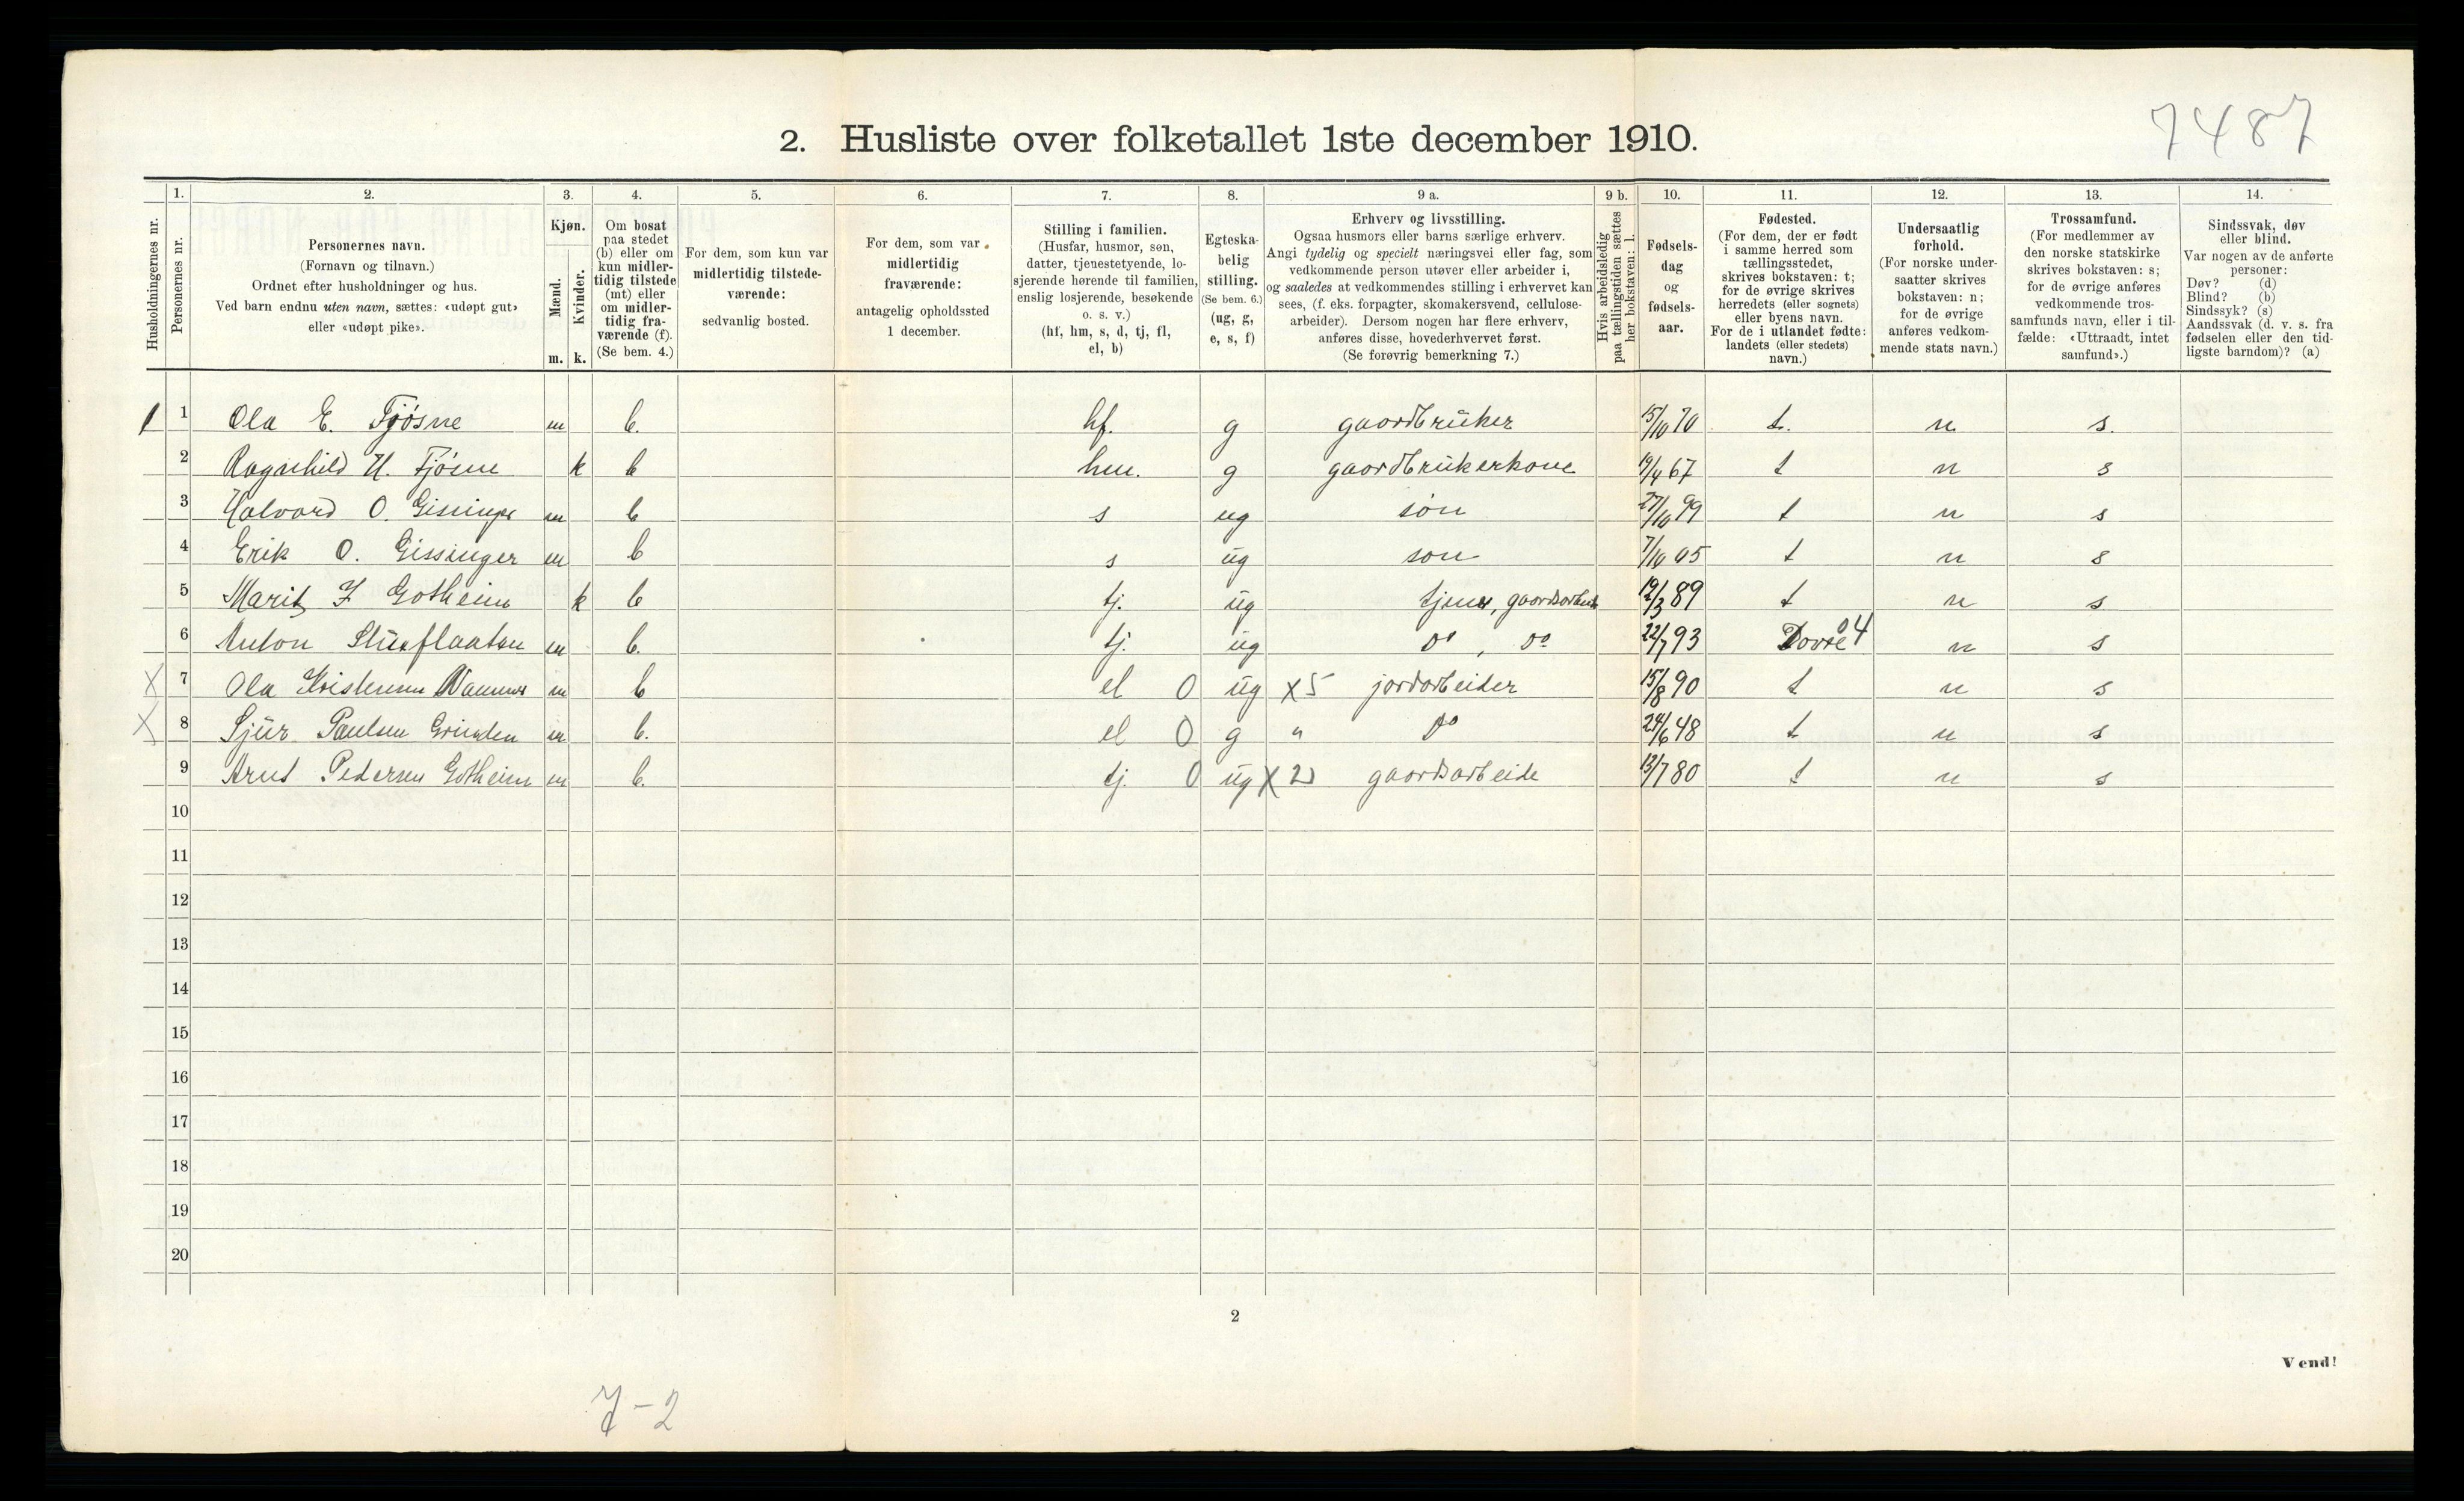 7487
2. Husliste over folketallet 1ste december 1910.
Husholdningernes nr.
1. Personernes nr.
2. Personernes navn.
(Fornavn og tilnavn.)
Ordnet efter husholdninger og hus.
Ved barn endnu uten navn, sættes: «udøpt gut»
eller «udøpt pike».
3. Kjøn.
Mænd. m.
Kvinder. k.
4. Om bosat
paa stedet
(b) eller om
kun midler-
tidig tilstede
(mt) eller
om midler-
tidig fra-
værende (f).
(Se bem. 4.)
5. For dem, som kun var
midlertidig tilstede-
værende:
sedvanlig bosted.
6. For dem, som var
midlertidig
fraværende:
antagelig opholdssted
1 december.
7. Stilling i familien.
(Husfar, husmor, søn,
datter, tjenestetyende, lo-
sjerende hørende til familien,
enslig losjerende, besøkende
o. s. v.)
(hf, hm, s, d, tj, fl,
el, b)
8. Egteska-
belig
stilling.
(Se bem. 6.)
(ug, g,
e, s, f)
9 a. Erhverv og livsstilling.
Ogsaa husmors eller barns særlige erhverv.
Angi tydelig og specielt næringsvei eller fag, som
vedkommende person utøver eller arbeider i,
og saaledes at vedkommendes stilling i erhvervet kan
sees, (f. eks. forpagter, skomakersvend, cellulose-
arbeider). Dersom nogen har flere erhverv,
anføres disse, hovederhvervet først.
(Se forøvrig bemerkning 7.)
9 b. Hvis arbeidsledig
paa tællingstiden sættes
her bokstaven: l.
10. Fødsels-
dag
og
fødsels-
aar.
11. Fødested.
(For dem, der er født
i samme herred som
tællingsstedet,
skrives bokstaven: t;
for de øvrige skrives
herredets (eller sognets)
eller byens navn.
For de i utlandet fødte:
landets (eller stedets)
navn.)
12. Undersaatlig
forhold.
(For norske under-
saatter skrives
bokstaven: n;
for de øvrige
anføres vedkom-
mende stats navn.)
13. Trossamfund.
(For medlemmer av
den norske statskirke
skrives bokstaven: s;
for de øvrige anføres
vedkommende tros-
samfunds navn, eller i til-
fælde: «Uttraadt, intet
samfund».)
14. Sindssvak, døv
eller blind.
Var nogen av de anførte
personer:
Døv? (d)
Blind? (b)
Sindssyk? (s)
Aandssvak (d. v. s. fra
fødselen eller den tid-
ligste barndom)? (a)
1 1 Ola E. Fjøsne m b. hf. g gaardbruker 15/10 70 t. n s.
2 Ragnhild H. Fjøsne k b hm. g gaardbrukerkone 19/4 67 t n s
3 Halvord O. m b s ug søn 27/10 99 t n s
4 Erik O. Gissinger m b s ug søn 7/10 05 t n s
5 Marit Gotheim k b tj. ug tjener, gaardsarbeid 12/3 89 t n s
6 Anton m b. tj. ug do, do 22/7 93 Dovre 04 n s
X 7 Ola m b el 0 ug x5 jordarbeider 15/8 90 t n s
X 8 Sjur Paulsen Grinden m b. el 0 g " do 24/6 48 t n s
9 Arnt Pedersen Gotheim m b. tj. 0 ug X 2 gaardsarbeide 13/7 80 t n s
10
11
12
13
14
15
16
17
18
19
20
2
Vend!
7-2